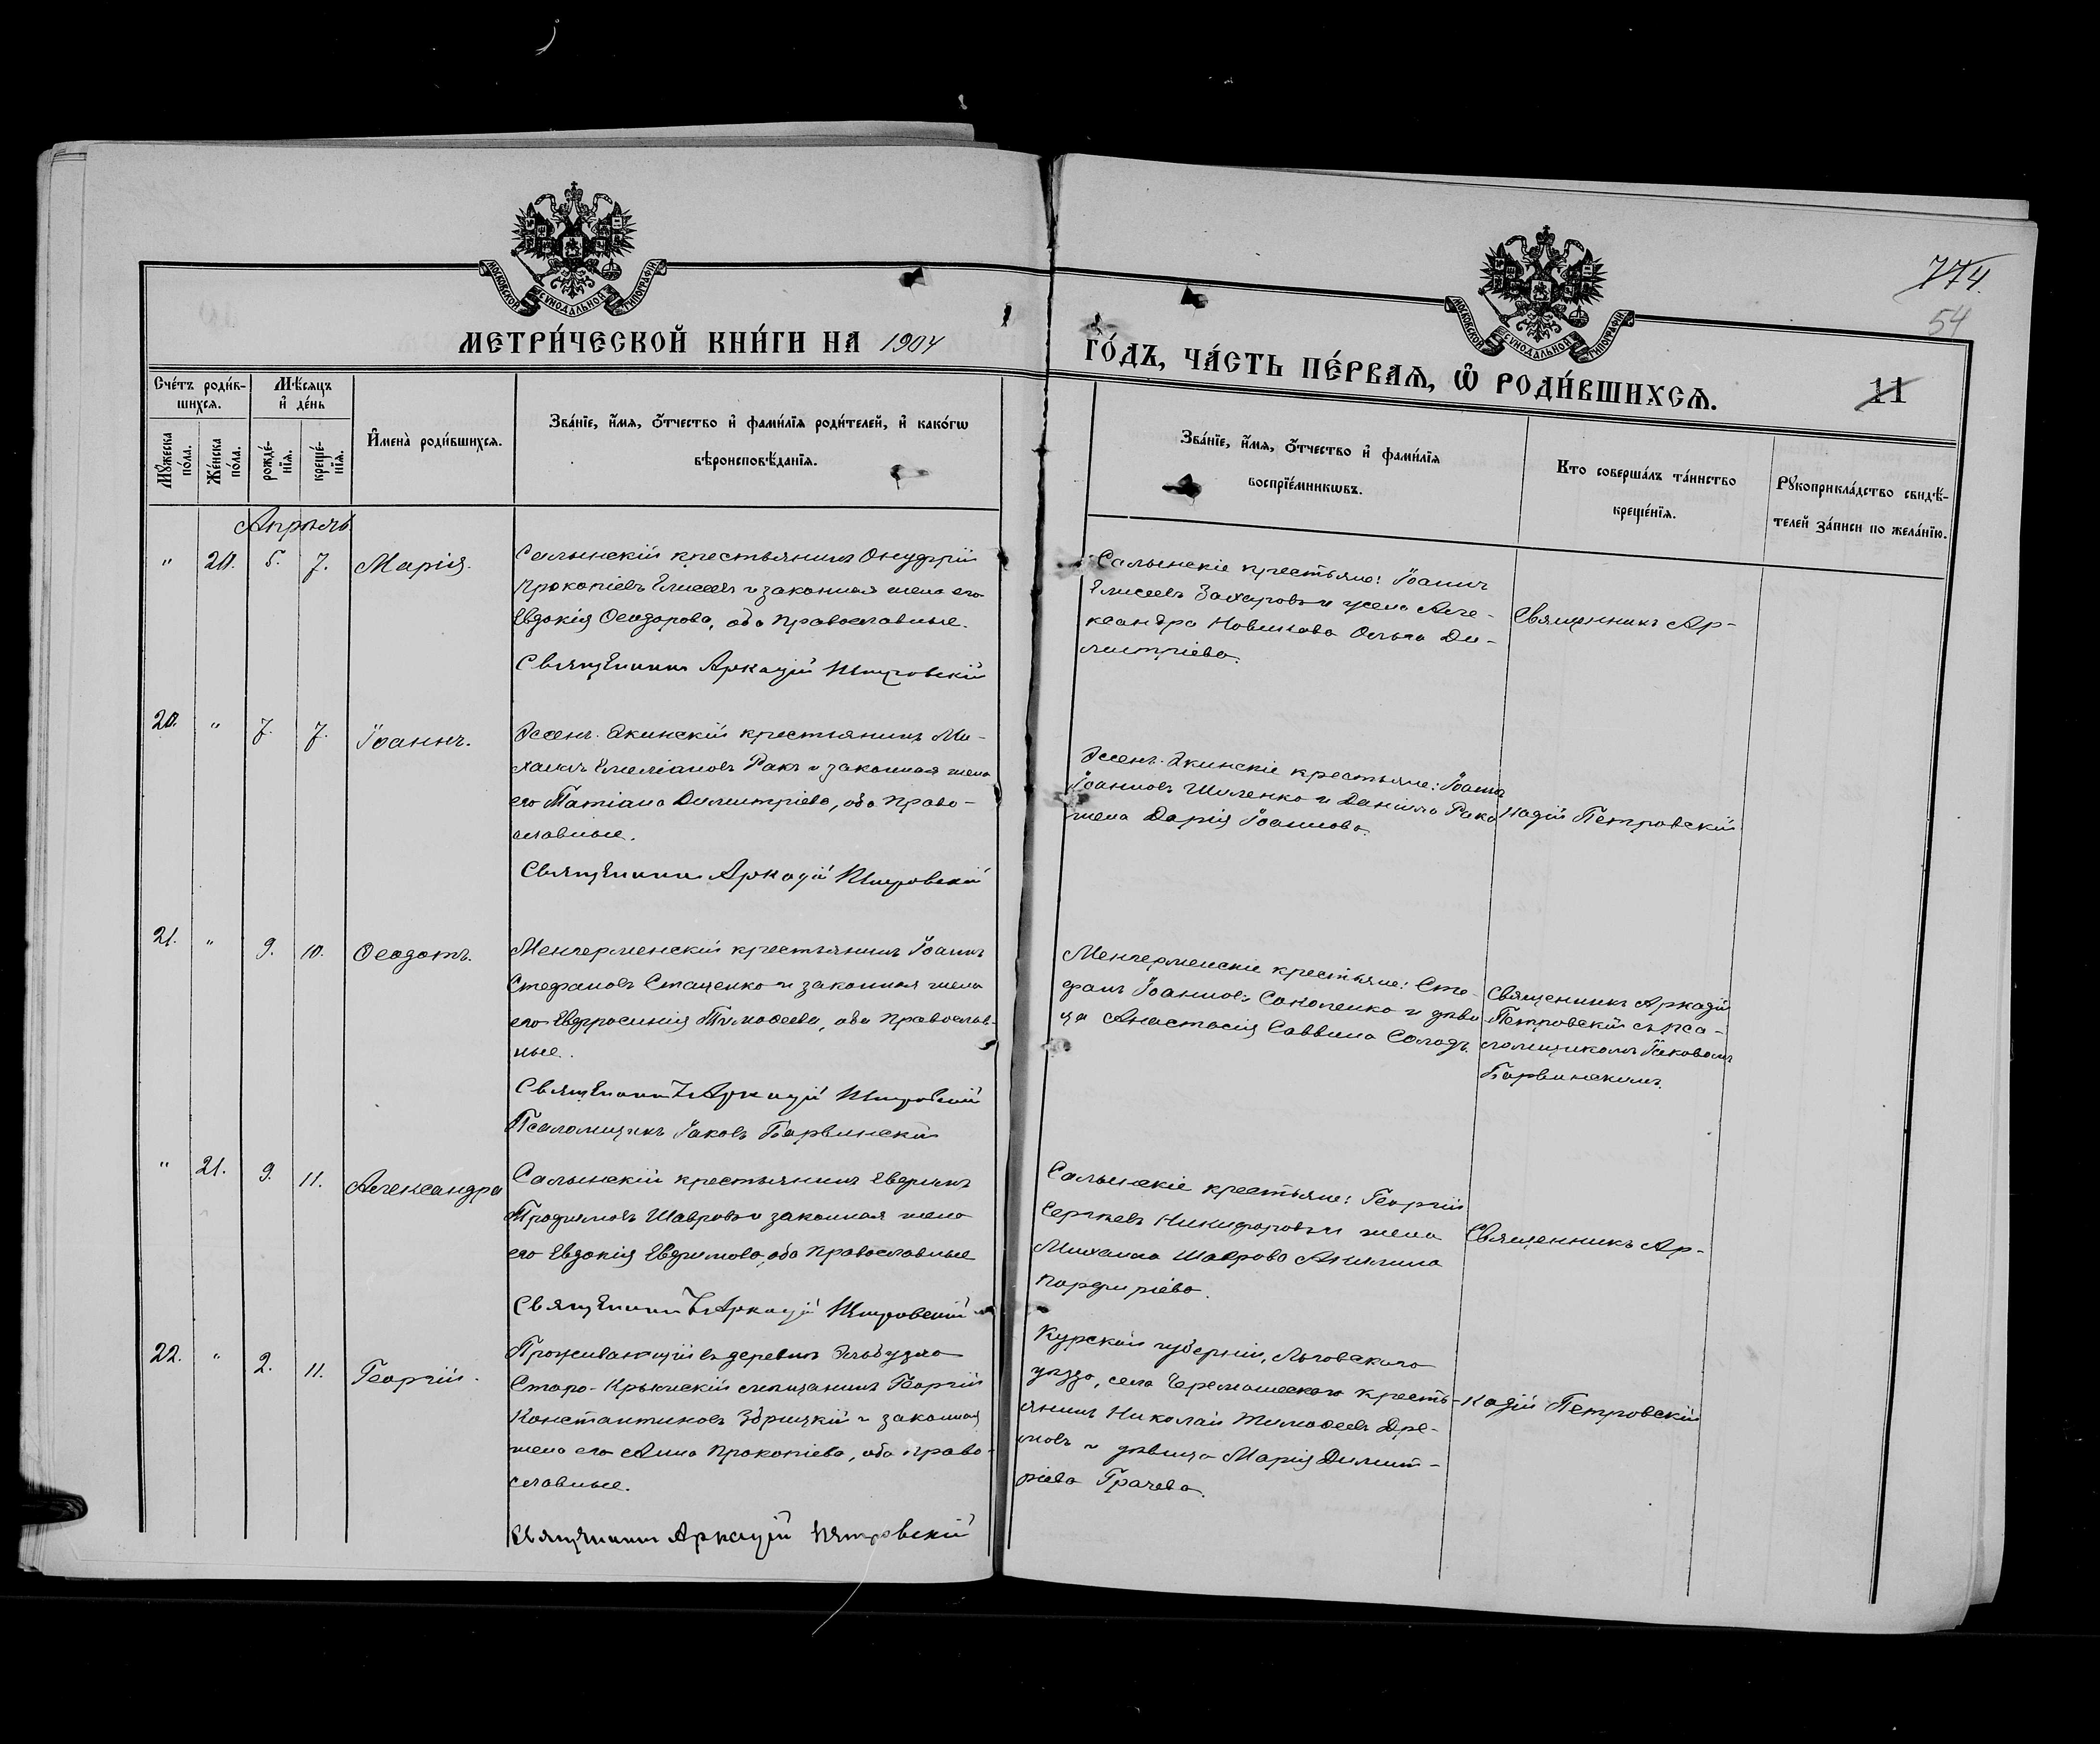 МОСКОВСКОЙ СѴНОДАЛЬНОЙ ТИПОГРАФІИ
МОСКОВСКОЙ СѴНОДАЛЬНОЙ ТИПОГРАФІИ
774.
54
МЕТРИ́ЧЕСКОЙ КНИ́ГИ НА 1904
ГО́ДЪ, ЧА́СТЬ ПЕ́РВАѦ, Ѡ҆ РОДИ́ВШИХСѦ.
11
Сче́тъ роди́в-
шихсѧ.
Мѣ́сѧцъ
и҆ де́нь
Мꙋ́жеска
по́ла.
Же́нска
по́ла.
рожде́-
нїѧ.
креще́-
нїѧ.
И҆мена̀ роди́вшихсѧ.
Зва́нїе, и҆́мѧ, о҆́тчество и҆ фами́лїѧ роди́телей, и҆ како́гѡ
вѣроисповѣ́данїѧ.
Зва́нїе, и҆́мѧ, о҆́тчество и҆ фами́лїѧ
воспрїе́мникѡвъ.
Кто соверша́лъ та́инство
креще́нїѧ.
Рꙋкоприкла́дство свидѣ́-
телей за́писи по жела́нїю.
Апрѣль
" 20. 5. 7. Марія.
Салынскій крестьянинъ Онуфрій
Прокопіевъ Елисеевъ и законная жена его
Евдокія Ѳеодорова, оба православные.
Священникъ Аркадій Петровскій
Салынскіе крестьяне: Іоаннъ
Елисеевъ Захаровъ и жена Але-
ксандра Новикова Ольга Ди-
митріева.
Священникъ Ар-
20. " 7. 7. Іоаннъ.
Эссенъ-Экинскій крестьянинъ Ми-
хаилъ Емеліановъ Ракъ и законная жена
его Татіана Димитріева, оба право-
славные.
Священникъ Аркадій Петровскій
Эссенъ-Экинскіе крестьяне: Іоаннъ
Іоанновъ Шиленко и Даніила Рака
жена Дарія Іоаннова.
кадій Петровскій
21. " 9. 10. Ѳеодотъ.
Менгерменскій крестьянинъ Іоаннъ
Стефановъ Стаценко и законная жена
его Евфросинія Тимоѳеева, оба православ-
ные.
Священникъ Аркадій Петровскій
Псаломщикъ Іаковъ Барвинскій
Менгерменскіе крестьяне: Сте-
фанъ Іоанновъ Соколенко и дѣви-
ца Анастасія Саввина Солодъ.
Священникъ Аркадій
Петровскій съ пса-
ломщикомъ Іаковомъ
Барвинскимъ.
" 21. 9. 11. Александра
Салынскій крестьянинъ Евфимъ
Трофимовъ Шавровъ и законная жена
его Евдокія Евфимова, оба православные
Священникъ Аркадій Петровскій
Салынскіе крестьяне: Георгій
Сергѣевъ Никифоровъ и жена
Михаила Шаврова Акилина
Порфиріева.
Священникъ Ар-
22. " 2. 11. Георгій.
Проживающій въ деревнѣ
Старо-Крымскій мѣщанинъ Георгій
Константиновъ Збрицкій и законная
жена его Анна Прокопіева, оба право-
славные.
Священникъ Аркадій Петровскій
Курской губерніи, Льговскаго
уѣзда, села крестьянинъ
Николай Тимоѳеевъ Дре-
мовъ и дѣвица Марія Димит-
ріева Грачева.
кадій Петровскій